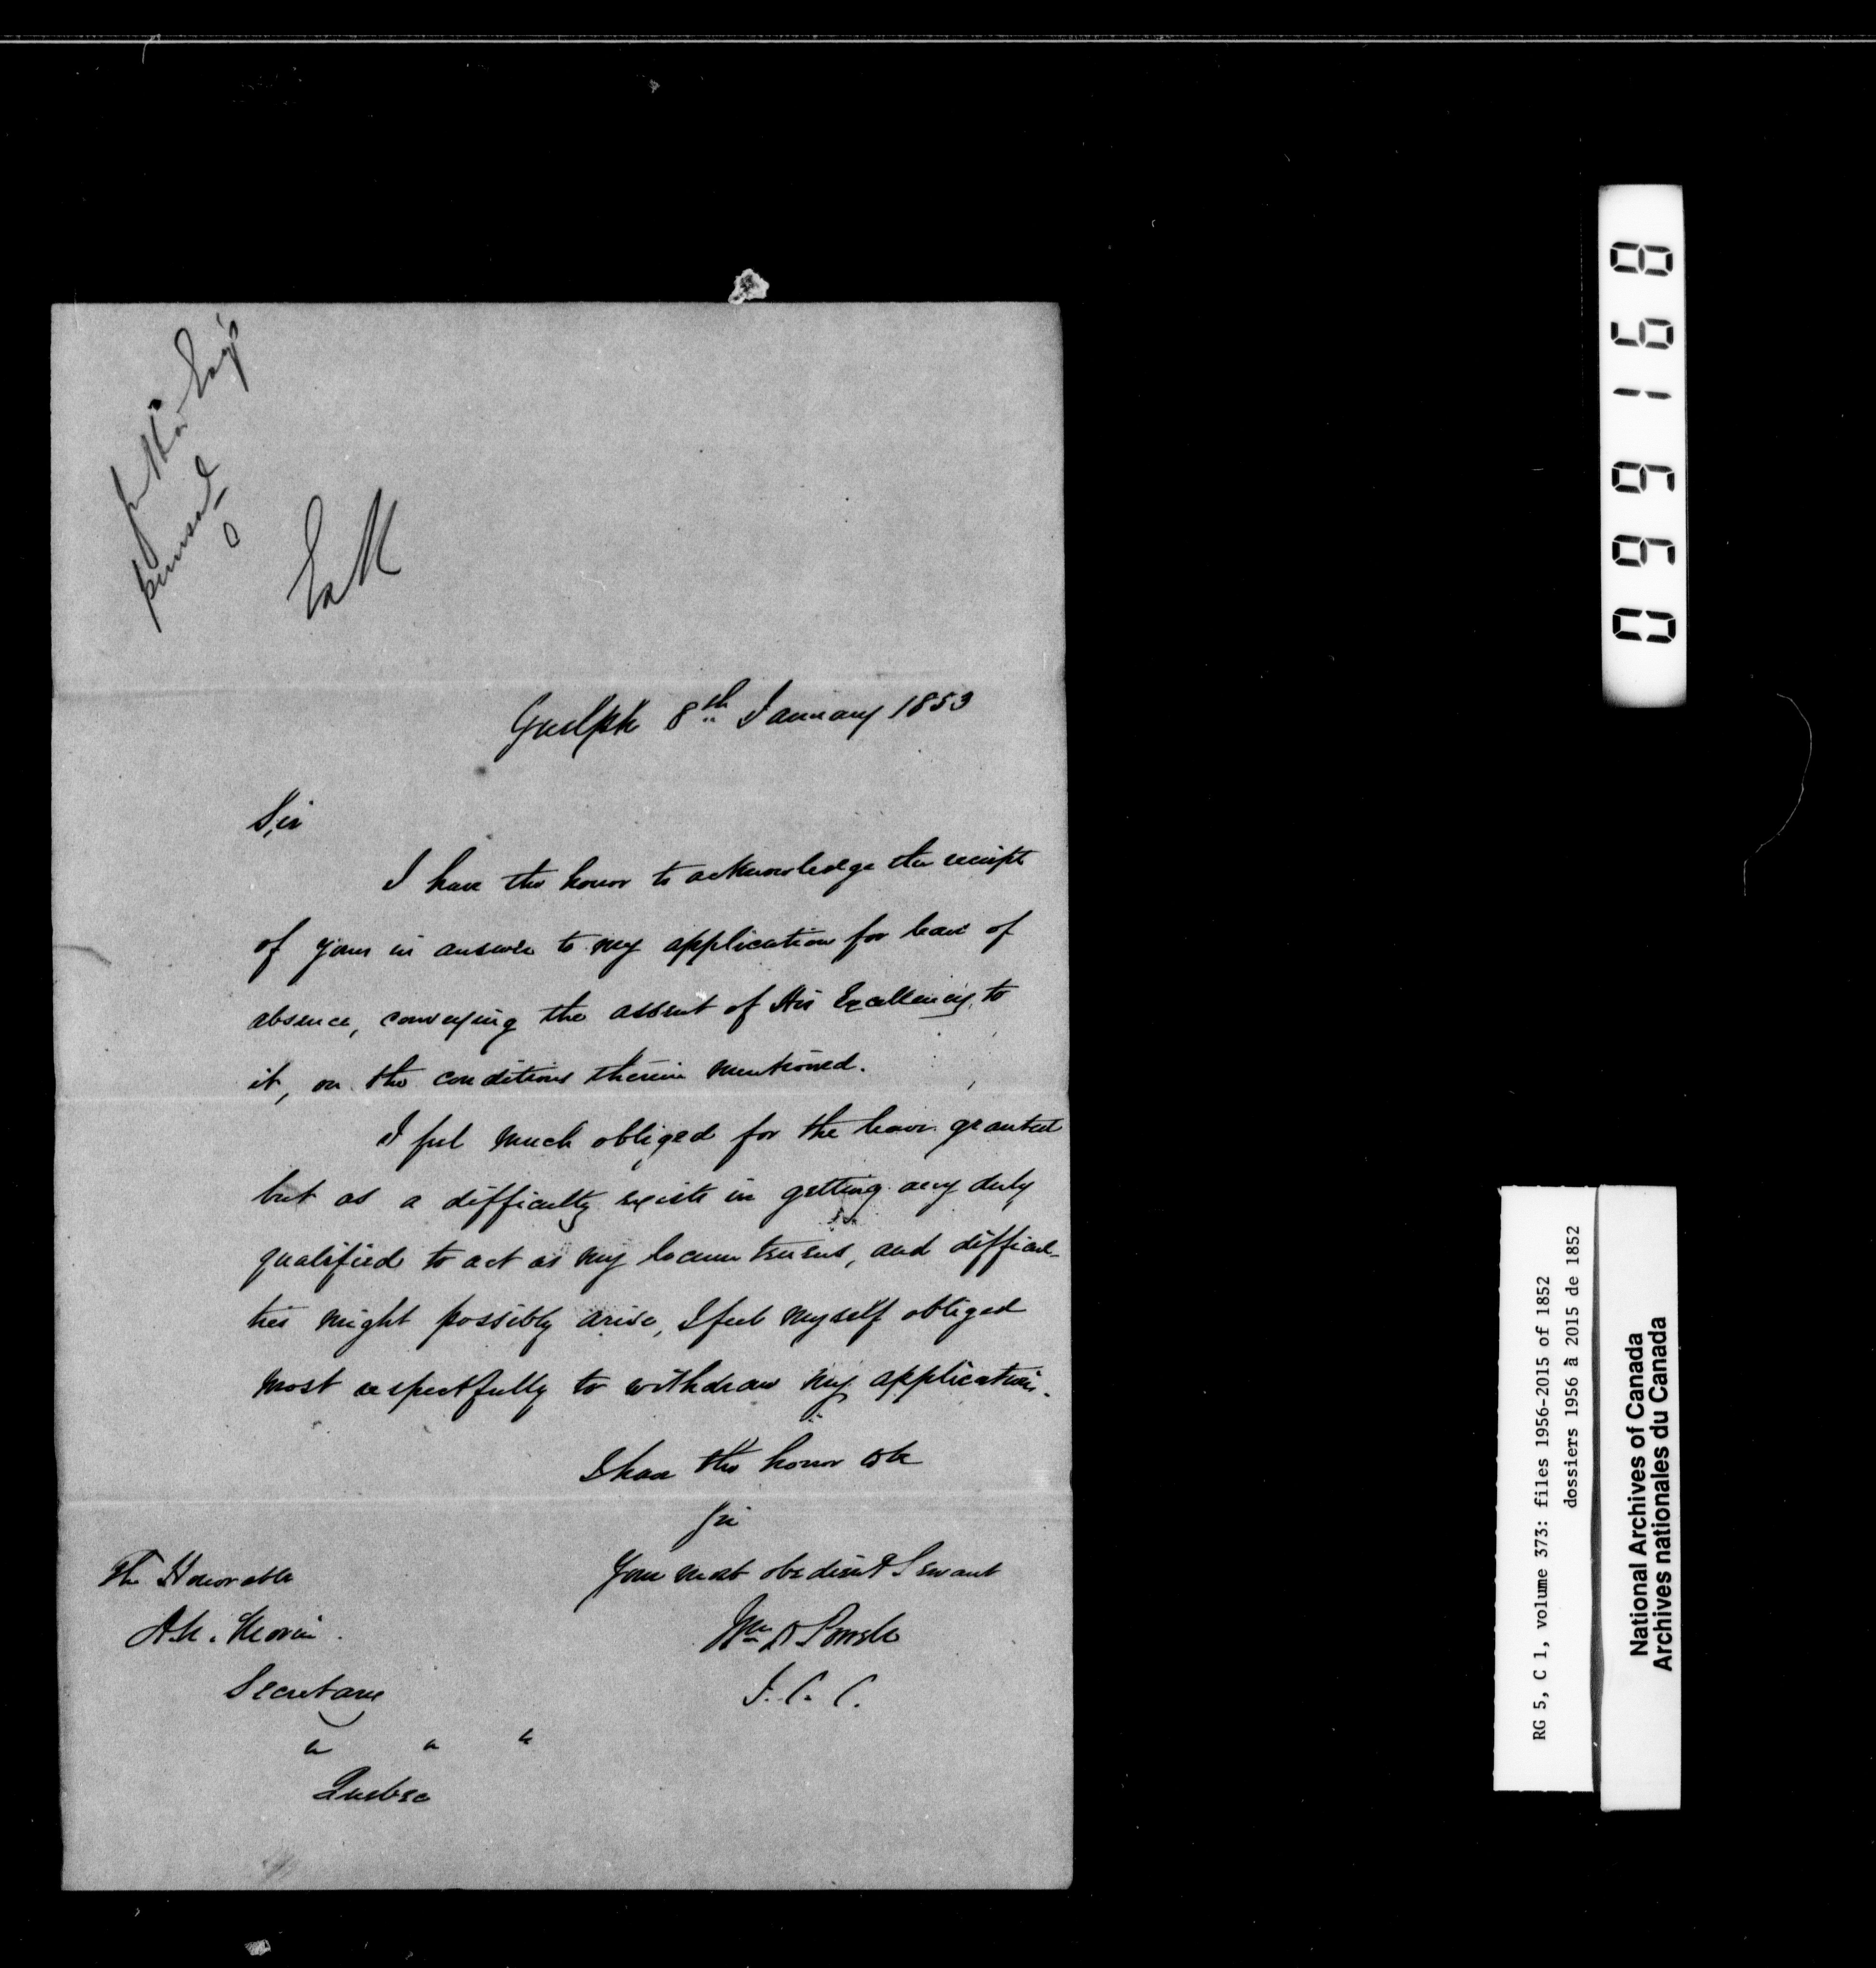 for His Exc'y's
perusal
E&K
Guelph 8th January 1853
Sir
I have the honor to acknowledge the receipt
of yours in answer to my application for leave of
absence, conveying the assent of His Excellency to
it, on the conditions therein mentioned.
I feel much obliged for the leave granted
but as a difficulty exists in getting any duly
qualified to act as my locum tenens, and difficul-
ties might possibly arise, I feel myself obliged
most respectfully to withdraw my application.
I have the honor to be
Sir
Your most obedient Servant
Wm D Powell
J. C. C.
The Honorable
A.N. Morin
Secretary
" " "
Quebec
099168
RG 5, C 1, volume 373: files 1956-2015 of 1852
dossiers 1956 à 2015 de 1852
National Archives of Canada
Archives nationales du Canada